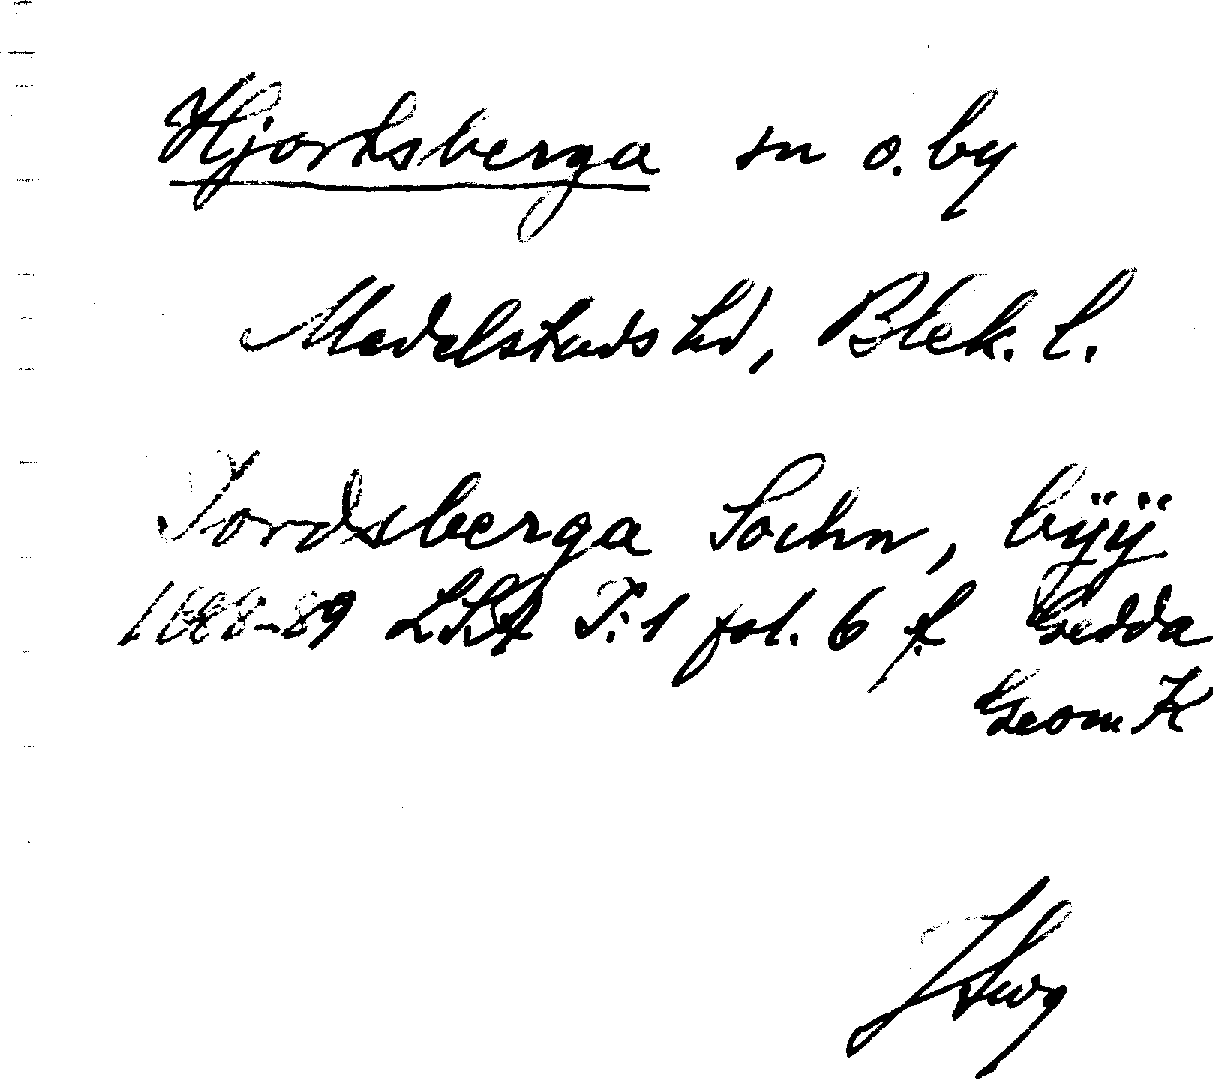 Hjortsberga sn o. by
Medelstads hd, Blek. l.
Jordsberga Sochn, bÿÿ
1688-89 LSA T:1 fol. 6 f. Gedda
Geom K